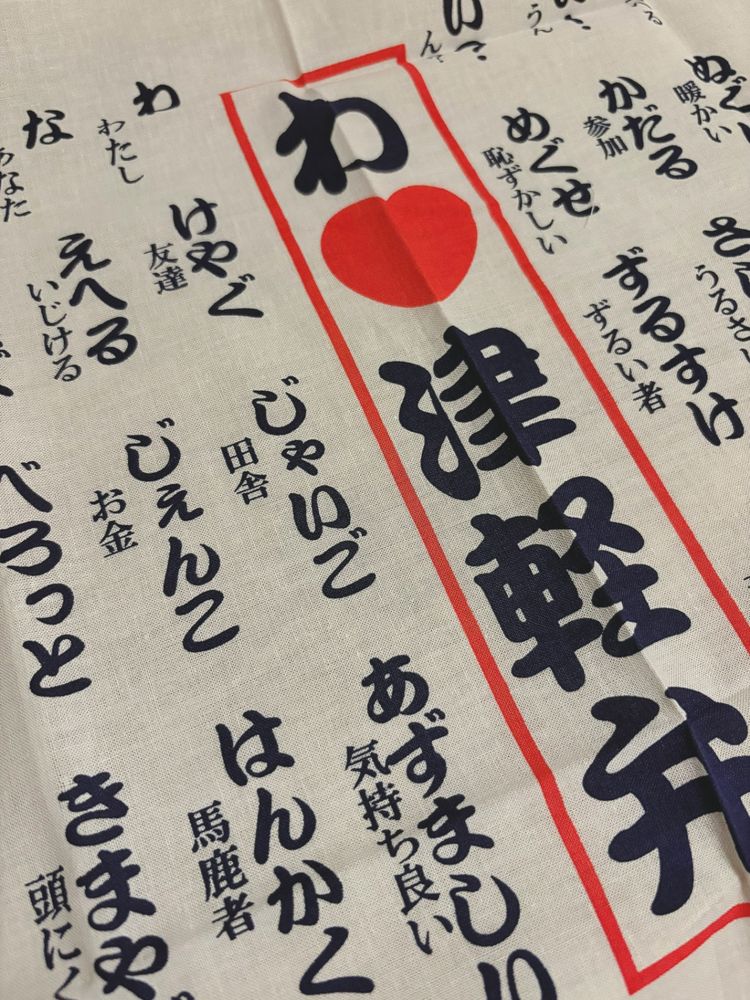 ぬぐい
暖かい
かだる
参加
めぐせ
恥ずかしい
ずるすけ
ずるい者
わ
津軽弁
わ
わたし
な
あなた
けやぐ
友達
えへる
いじける
じゃいご
田舎
じぇんこ
お金
べろっと
あずましい
気持ち良い
はんかく
馬鹿者
きまや
頭にく